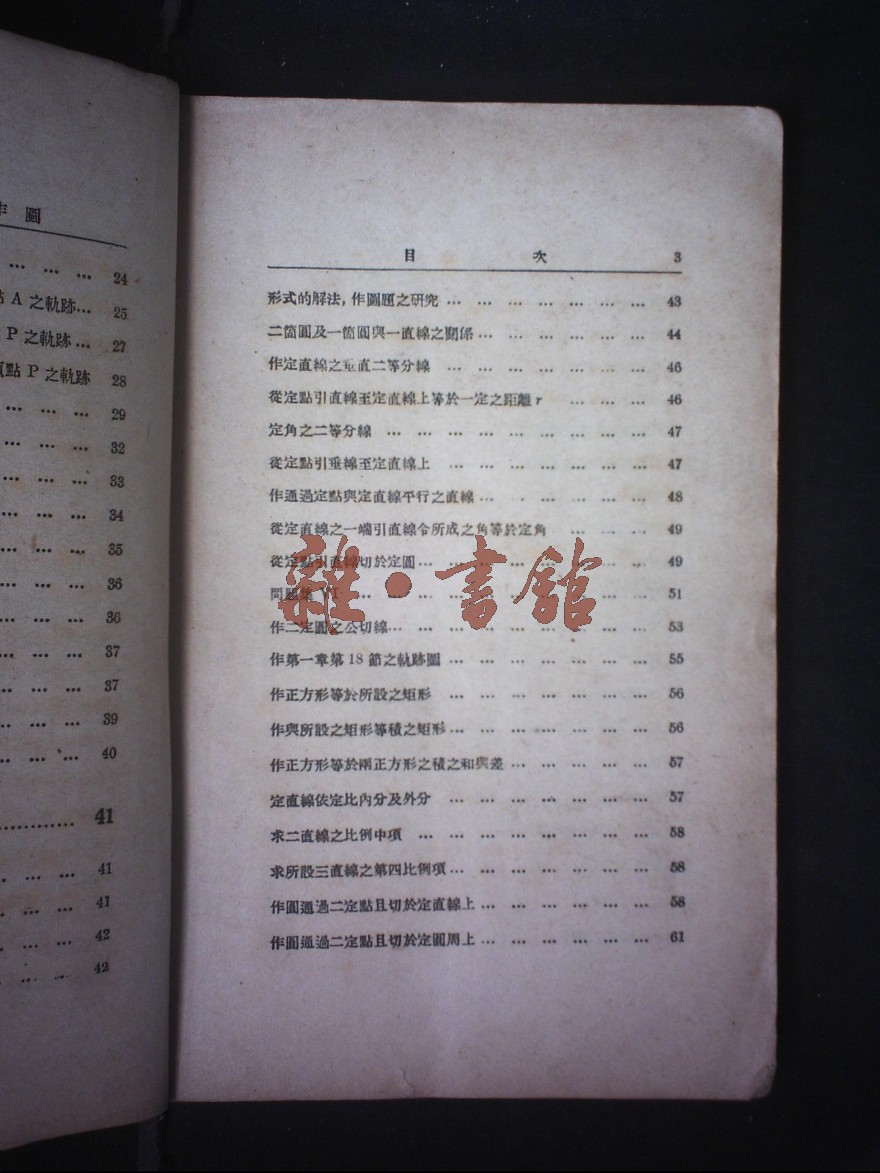 作圖
… … … 24
點 A 之軌跡… 25
P 之軌跡… 27
頂點 P 之軌跡 28
… … … 29
… … … 32
… … … 33
… … … 34
… … … 35
… … … 36
… … … 36
… … … 37
… … … 37
… … … 39
… … … 40
………… 41
… … … 41
… … … 41
… … … 42
… … … 42
目 次 3
形式的解法，作圖題之研究 … … … … … … … 43
二箇圓及一箇圓與一直線之關係… … … … … … 44
作定直線之垂直二等分線 … … … … … … … 46
從定點引直線至定直線上等於一定之距離 r … … … 46
定角之二等分線 … … … … … … … … … 47
從定點引垂線至定直線上 … … … … … … … 47
作通過定點與定直線平行之直線… … … … … … 48
從定直線之一端引直線令所成之角等於定角 … … … 49
從定點引直線切於定圓… … … … … … … … 49
問題集 … … … … … … … … … 51
作二定圓之公切線… … … … … … … … … 53
作第一章第 18 節之軌跡圖 … … … … … … … 55
作正方形等於所設之矩形 … … … … … … … 56
作與所設之矩形等積之矩形… … … … … … … 56
作正方形等於兩正方形之積之和與差… … … … … 57
定直線依定比內分及外分 … … … … … … … 57
求二直線之比例中項 … … … … … … … … 58
求所設三直線之第四比例項… … … … … … … 58
作圓通過二定點且切於定直線上… … … … … … 58
作圓通過二定點且切於定圓周上… … … … … … 61
雜·書館